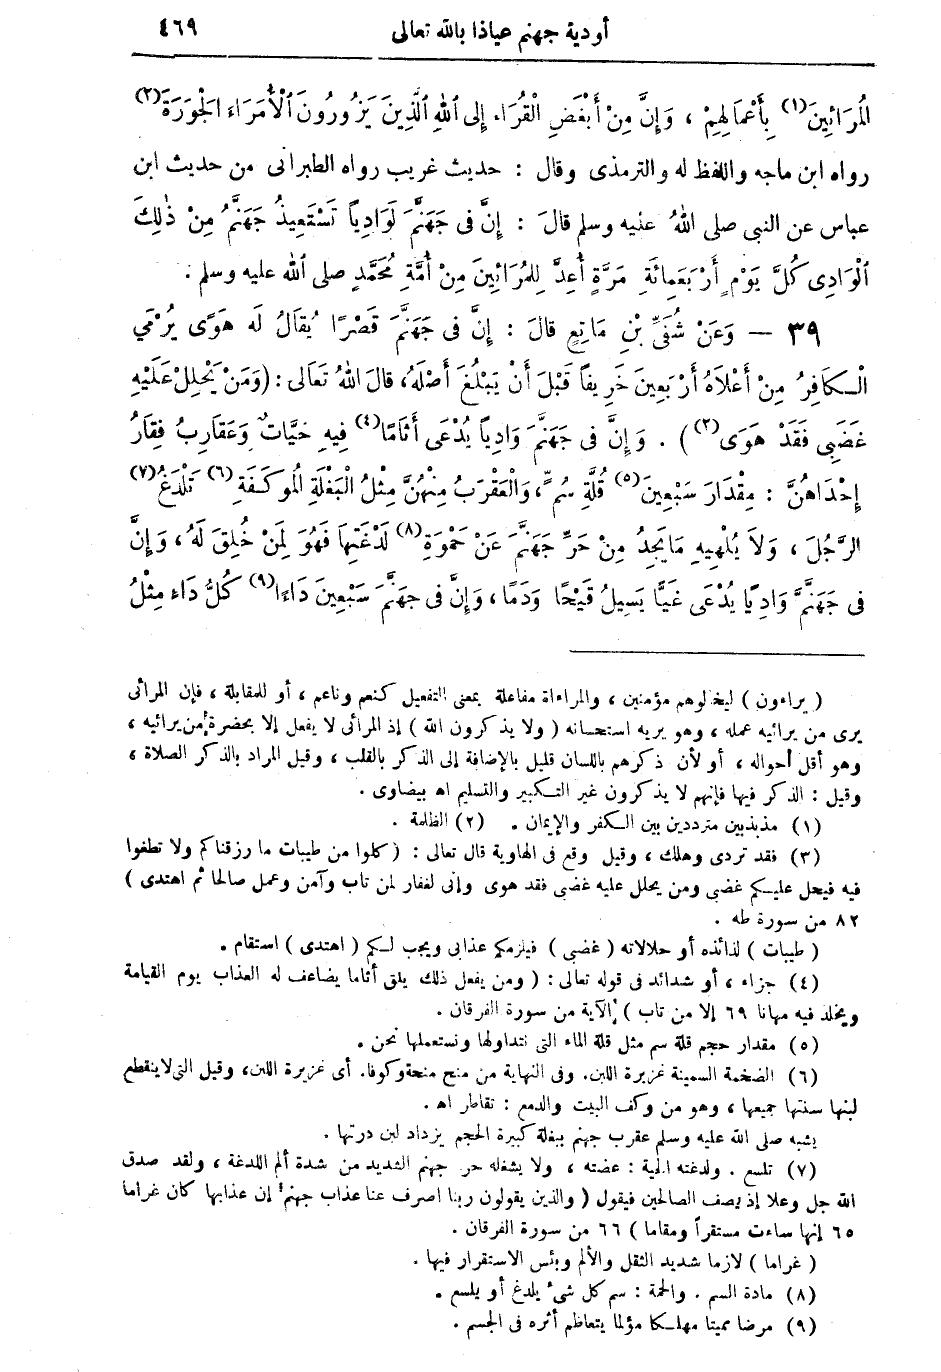 أودية جهنم عياذا بالله تعالى ٤٦٩
الْمُرَائِينَ(١) بِأَعْمَالِهِمْ ، وَإِنَّ مِنْ أَبْغَضِ الْقُرَّاءِ إِلَى اللهِ الَّذِينَ يَزُورُونَ الْأُمَرَاءَ الْجَوَرَةَ(٢)
رواه ابن ماجه واللفظ له والترمذى وقال : حديث غريب رواه الطبرانى من حديث ابن
عباس عن النبى صلى اللهُ عليه وسلم قالَ : إِنَّ فِى جَهَنَّمَ لَوَادِياً تَسْتَعِيذُ جَهَنَّمُ مِنْ ذٰلِكَ
الْوَادِى كُلَّ يَوْمٍ أَرْبَعَمِائَةِ مَرَّةٍ أُعِدَّ لِلْمُرَائِينَ مِنْ أُمَّةِ مُحَمَّدٍ صلى الله عليه وسلم .
٣٩ — وَعَنْ شُفَىِّ بْنِ مَاتِعٍ قالَ : إِنَّ فِى جَهَنَّمَ قَصْرًا يُقَالُ لَه هَوًى يُرْمَي
الْكَافِرُ مِنْ أَعْلَاهُ أَرْبَعِينَ خَرِيفاً قَبْلَ أَنْ يَبْلُغَ أَصْلَهُ، قالَ اللهُ تَعَالَى : (وَمَنْ يَحْلِلْ عَلَيْهِ
غَضَبِى فَقَدْ هَوَى(٣)) . وَإِنَّ فِى جَهَنَّمَ وَادِياً يُدْعَى أَثَامًا(٤) فِيهِ حَيَّاتٌ وَعَقَارِبُ فِقَارُ
إِحْدَاهُنَّ : مِقْدَارَ سَبْعِينَ(٥) قُلَّةَ سُمٍّ، وَالْعَقْرَبُ مِنْهُنَّ مِثْلُ الْبَغْلَةِ الْمُوكَفَةِ(٦) تَلْدَغُ(٧)
الرَّجُلَ ، وَلَا يُلْهِيهِ مَا يَجِدُ مِنْ حَرِّ جَهَنَّمَ عَنْ حَمْوَةِ(٨) لَدْغَتِهَا فَهُوَ لِمَنْ خُلِقَ لَهُ ، وَإِنَّ
فِى جَهَنَّمَ وَادِيًا يُدْعَى غَيًّا يَسِيلُ قَيْحًا وَدَمًا ، وَإِنَّ فِى جهنَّمَ سَبْعِينَ دَاءًا(٩) كُلُّ دَاءٍ مِثْلُ
( يراءون ) ليخالوهم مؤمنين ، والمراءاة مفاعلة بمعنى التفعيل كنعم وناعم ، أو للمقابلة ، فإن المرائى
يرى من يرائيه عمله ، وهو يريه استحسانه ( ولا يذكرون الله ) إذ المرائى لا يفعل إلا بحضرة من يرائيه ،
وهو أقل أحواله ، أو لأن ذكرهم باللسان قليل بالإضافة إلى الذكر بالقلب ، وقيل المراد بالذكر الصلاة ،
وقيل : الذكر فيها فإنهم لا يذكرون غير التكبير والتسليم اه بيضاوى .
(١) مذبذبين مترددين بين الكفر والإيمان . (٢) الظلمة .
(٣) فقد تردى وهلك ، وقيل وقع فى الهاوية قال تعالى : (كلوا من طيبات ما رزقناكم ولا تطغوا
فيه فيحل عليكم غضبى ومن يحلل عليه غضبى فقد هوى وإنى لغفار لمن تاب وآمن وعمل صالحا ثم اهتدى )
٨٢ من سورة طه .
( طيبات ) لذائذه أو حلالاته ( غضبى ) فيلزمكم عذابى ويجب لكم ( اهتدى ) استقام .
(٤) جزاء ، أو شدائد فى قوله تعالى : ( ومن يفعل ذلك يلق أثاما يضاعف له العذاب يوم القيامة
ويخلد فيه مهانا ٦٩ إلا من تاب ) الآية من سورة الفرقان .
(٥) مقدار حجم قلة سم مثل قلة الماء التى نتداولها ونستعملها نحن .
(٦) الضخمة السمينة غزيرة اللبن. وفى النهاية من منح منحة وكوفا. أى غزيرة اللبن، وقيل التى لا ينقطع
لبنها سنتها جميعها ، وهو من وكف البيت والدمع : تقاطر اه .
يشبه صلى الله عليه وسلم عقرب جهنم ببغلة كبيرة الحجم يزداد لبن درتها .
(٧) تلسع . ولدغته الحية : عضته ، ولا يشغله حر جهنم الشديد من شدة ألم اللدغة ، ولقد صدق
الله جل وعلا إذ يصف الصالحين فيقول ( والذين يقولون ربنا اصرف عنا عذاب جهنم إن عذابها كان غراما
٦٥ إنها ساءت مستقراً ومقاما ) ٦٦ من سورة الفرقان .
( غراما ) لازما شديد الثقل والألم وبئس الاستقرار فيها .
(٨) مادة السم . والحمة : سم كل شىء يلدغ أو يلسع .
(٩) مرضا مميتا مهلكا مؤلما يتعاظم أثره فى الجسم .